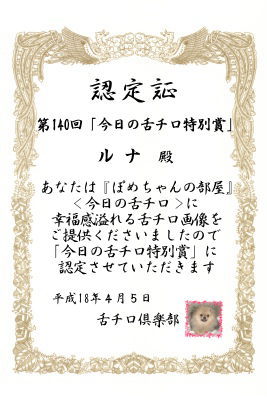 認定証
第140回「今日の舌チロ特別賞」
ルナ 殿
あなたは『ぽめちゃんの部屋』
<今日の舌チロ>に
幸福感溢れる舌チロ画像を
ご提供くださいましたので
「今日の舌チロ特別賞」に
認定させていただきます
平成18年4月5日
舌チロ倶楽部